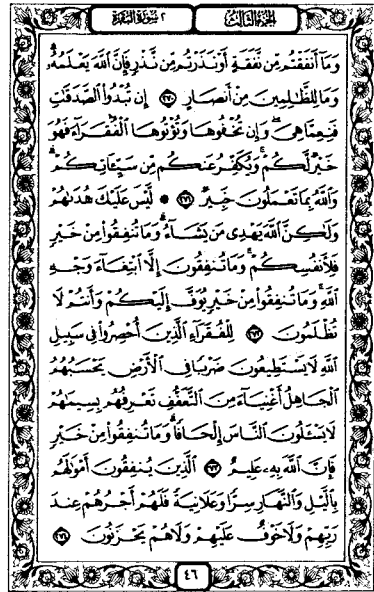 الجزء الثالث
٢ سورة البقرة
وَمَآ أَنفَقْتُم مِّن نَّفَقَةٍ أَوْ نَذَرْتُم مِّن نَّذْرٍ فَإِنَّ ٱللَّهَ يَعْلَمُهُۥ
وَمَا لِلظَّٰلِمِينَ مِنْ أَنصَارٍ ٢٧٠ إِن تُبْدُوا۟ ٱلصَّدَقَٰتِ
فَنِعِمَّا هِىَ وَإِن تُخْفُوهَا وَتُؤْتُوهَا ٱلْفُقَرَآءَ فَهُوَ
خَيْرٌ لَّكُمْ وَيُكَفِّرُ عَنكُم مِّن سَيِّـَٔاتِكُمْ
وَٱللَّهُ بِمَا تَعْمَلُونَ خَبِيرٌ ٢٧١ ۞ لَّيْسَ عَلَيْكَ هُدَىٰهُمْ
وَلَٰكِنَّ ٱللَّهَ يَهْدِى مَن يَشَآءُ وَمَا تُنفِقُوا۟ مِنْ خَيْرٍ
فَلِأَنفُسِكُمْ وَمَا تُنفِقُونَ إِلَّا ٱبْتِغَآءَ وَجْهِ
ٱللَّهِ وَمَا تُنفِقُوا۟ مِنْ خَيْرٍ يُوَفَّ إِلَيْكُمْ وَأَنتُمْ لَا
تُظْلَمُونَ ٢٧٢ لِلْفُقَرَآءِ ٱلَّذِينَ أُحْصِرُوا۟ فِى سَبِيلِ
ٱللَّهِ لَا يَسْتَطِيعُونَ ضَرْبًا فِى ٱلْأَرْضِ يَحْسَبُهُمُ
ٱلْجَاهِلُ أَغْنِيَآءَ مِنَ ٱلتَّعَفُّفِ تَعْرِفُهُم بِسِيمَٰهُمْ
لَا يَسْـَٔلُونَ ٱلنَّاسَ إِلْحَافًا وَمَا تُنفِقُوا۟ مِنْ خَيْرٍ
فَإِنَّ ٱللَّهَ بِهِۦ عَلِيمٌ ٢٧٣ ٱلَّذِينَ يُنفِقُونَ أَمْوَٰلَهُم
بِٱلَّيْلِ وَٱلنَّهَارِ سِرًّا وَعَلَانِيَةً فَلَهُمْ أَجْرُهُمْ عِندَ
رَبِّهِمْ وَلَا خَوْفٌ عَلَيْهِمْ وَلَا هُمْ يَحْزَنُونَ ٢٧٤
٤٦